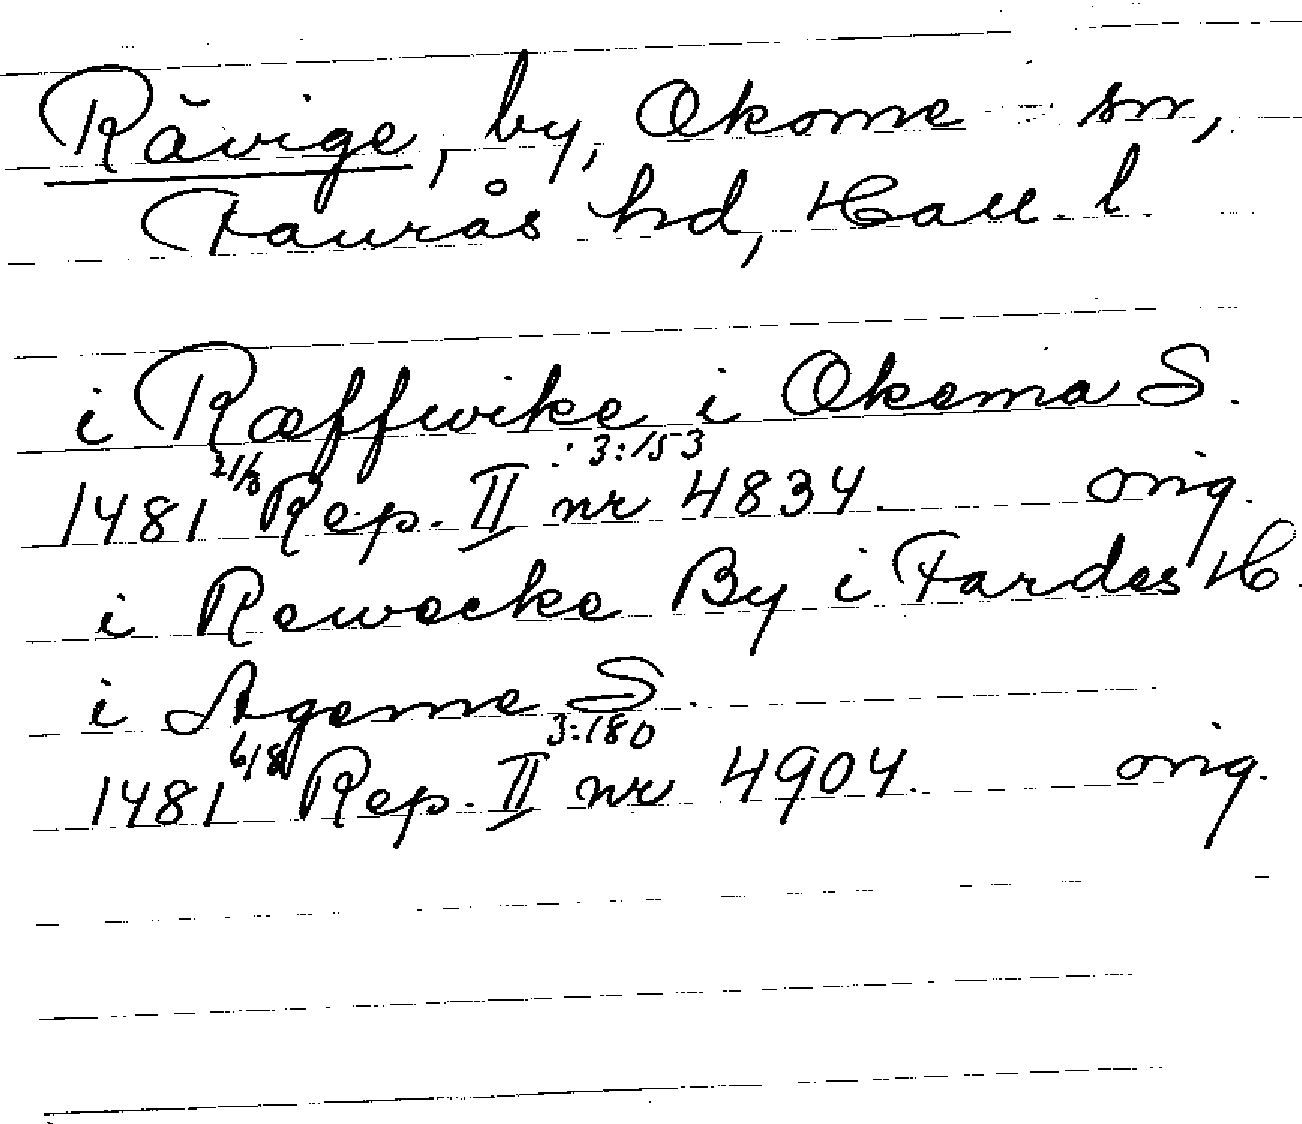 Rävige, by, Okome sn,
Faurås hd, Hall. l.
i Ræffwike i Okema S.
3:153
1481 21/3 Rep. II nr 4834. orig.
i Rewecke By i Fardes H.
i Ageme S.
3:180
1481 6/8 Rep. II nr 4904. orig.